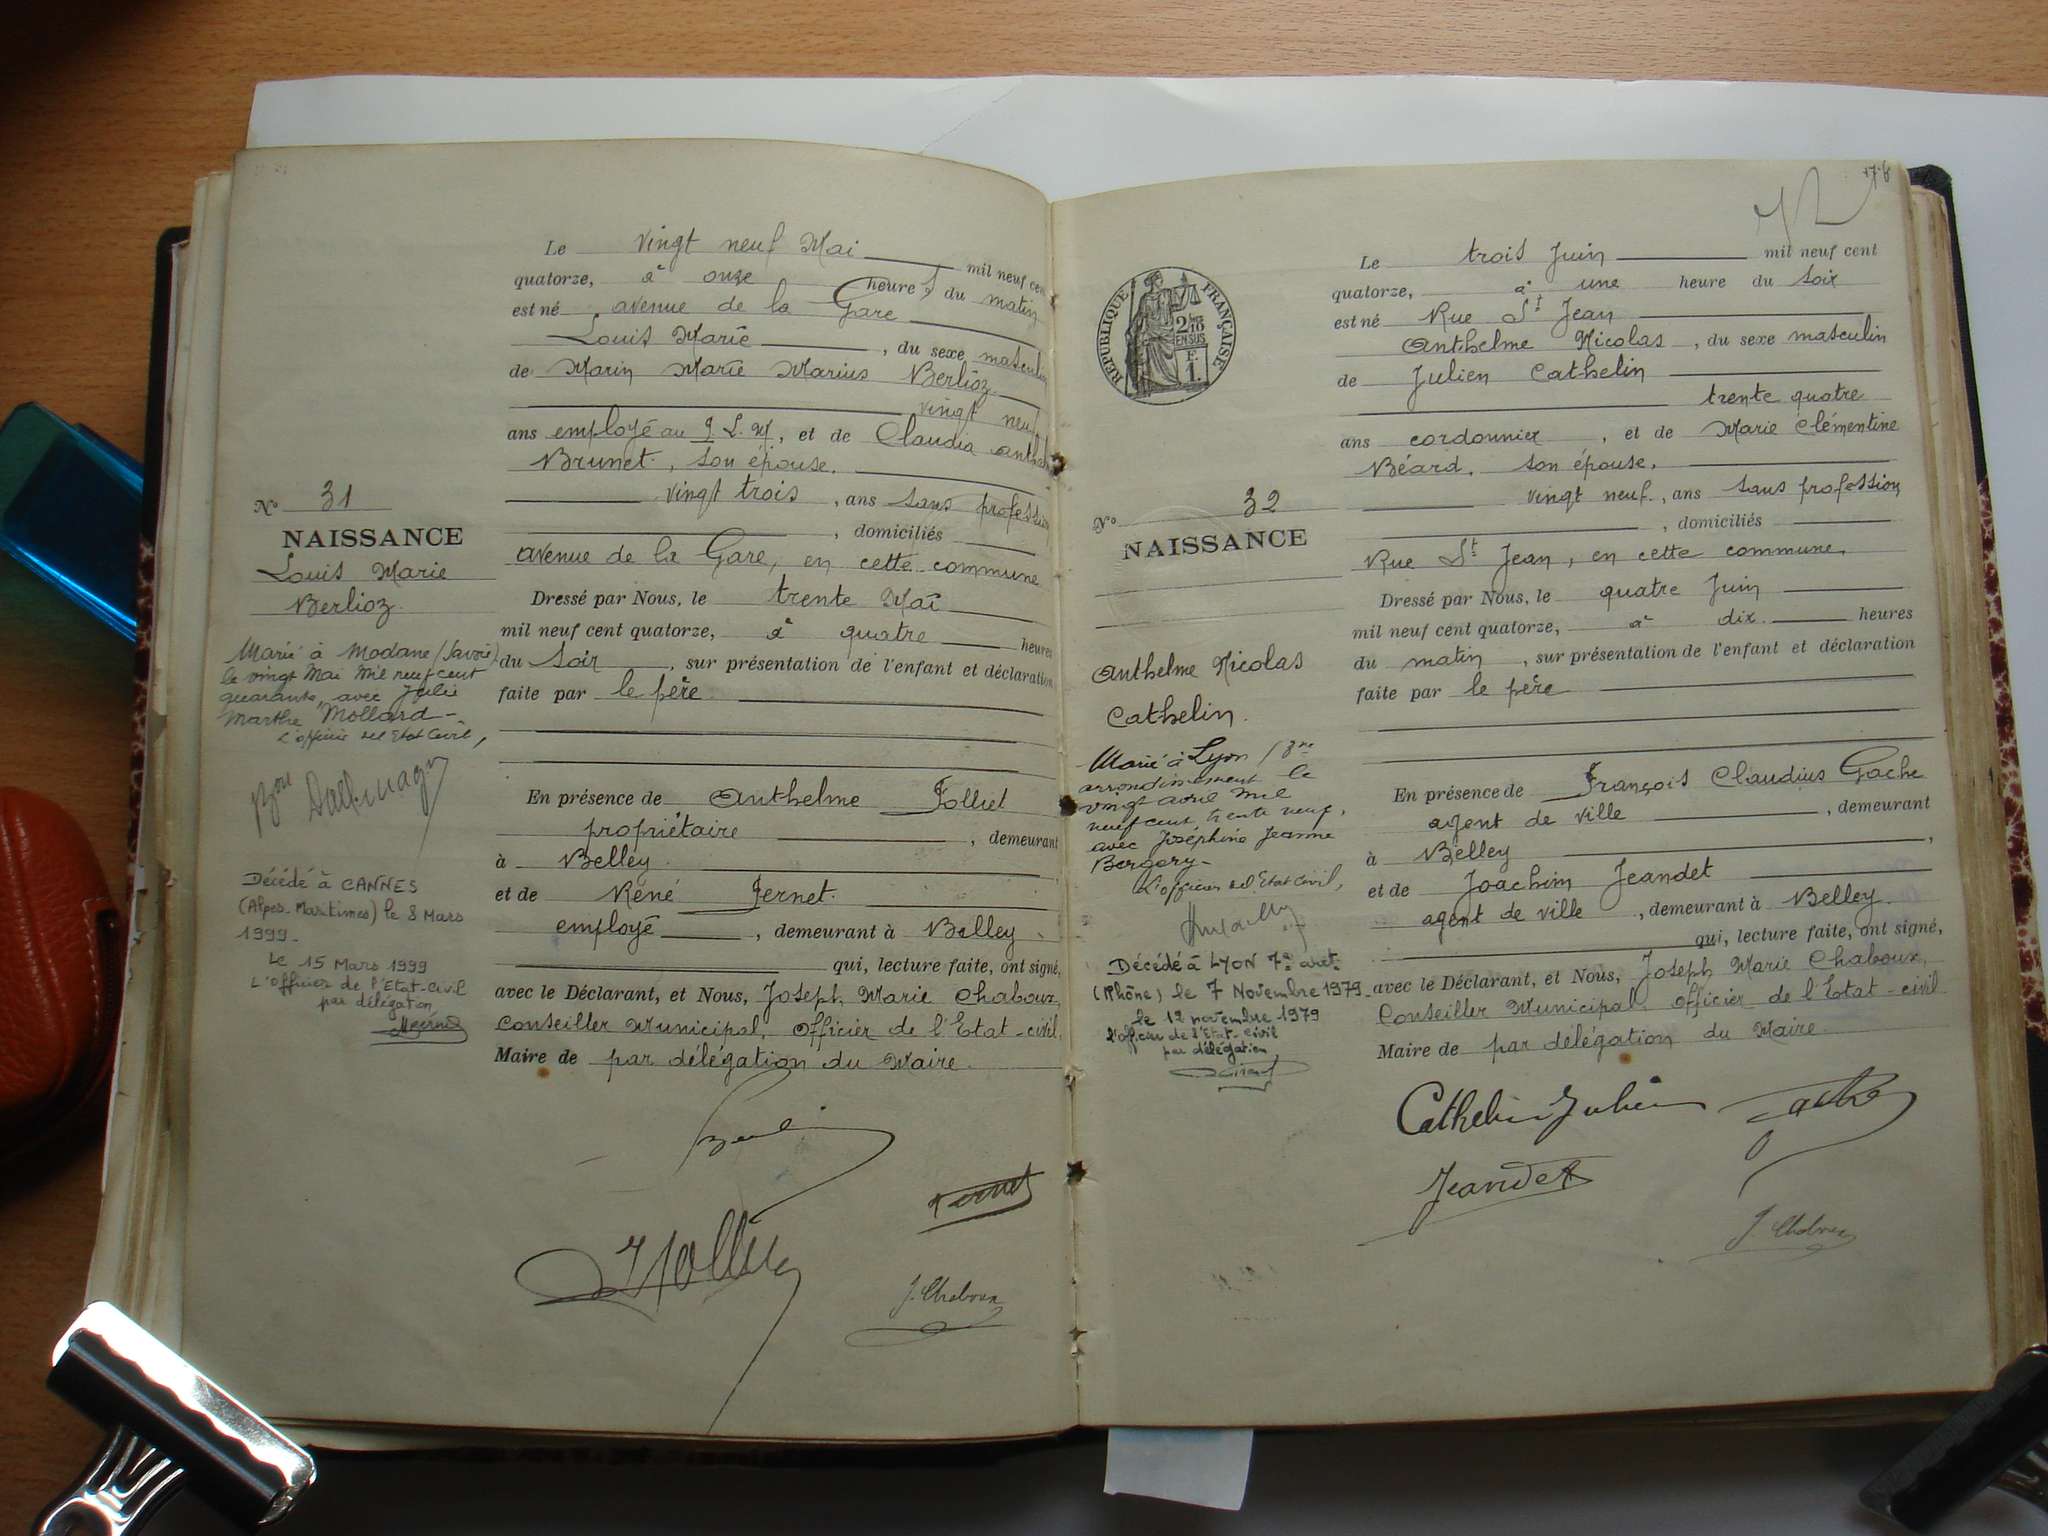 Le vingt neuf Mai mil neuf cent
quatorze, à onze heures du matin
est né avenue de la Gare
Louis Marie, du sexe masculin
de Marin Marie Marius Berlioz
vingt neuf
ans employé au P. L. M, et de Claudia
Brunet, son épouse.
vingt trois, ans sans profession
, domiciliés
avenue de la Gare, en cette commune
Dressé par Nous, le trente Mai
mil neuf cent quatorze, à quatre heures
du soir, sur présentation de l'enfant et déclaration
faite par le père
En présence de Anthelme Folliet
propriétaire, demeurant
à Belley
et de René Fernet
employé, demeurant à Belley
qui, lecture faite, ont signé,
avec le Déclarant, et Nous, Joseph Marie Chaboux,
Conseiller Municipal, officier de l'Etat-civil,
Maire de par délégation du Maire.
J. Chaboux
No 31
NAISSANCE
Louis Marie
Berlioz
Marié à Modane (Savoie)
le vingt Mai mil neuf cent
quarante, avec Julie
Marthe Mollard
L'officier de l'Etat Civil,
Décédé à CANNES
(Alpes-Maritimes) le 8 Mars
1999.
Le 15 Mars 1999
L'officier de l'Etat-Civil
par délégation
RÉPUBLIQUE FRANÇAISE
2/10
EN SUS
F.
1.
Le trois Juin mil neuf cent
quatorze, à une heure du soir
est né Rue St Jean
Anthelme Nicolas, du sexe masculin
de Julien Cathelin
trente quatre
ans cordonnier, et de Marie Clémentine
Béard, son épouse,
vingt neuf, ans sans profession
, domiciliés
Rue St Jean, en cette commune,
Dressé par Nous, le quatre Juin
mil neuf cent quatorze, à dix heures
du matin, sur présentation de l'enfant et déclaration
faite par le père
En présence de François Claudius Gache
agent de ville, demeurant
à Belley,
et de Joachim Jeandet
agent de ville, demeurant à Belley.
qui, lecture faite, ont signé,
avec le Déclarant, et Nous, Joseph Marie Chaboux,
Conseiller Municipal, officier de l'Etat-civil
Maire de par délégation du Maire
Cathelin Julien
Gache
Jeandet
J. Chaboux
No 32
NAISSANCE
Anthelme Nicolas
Cathelin.
Marié à Lyon / 3me
arrondissement le
vingt avril mil
neuf cent trente neuf,
avec Joséphine Jeanne
L'officier de l'Etat Civil,
Décédé à LYON 7e arrt
(Rhône) le 7 Novembre 1979
le 12 novembre 1979
L'officier de l'Etat-Civil
par délégation